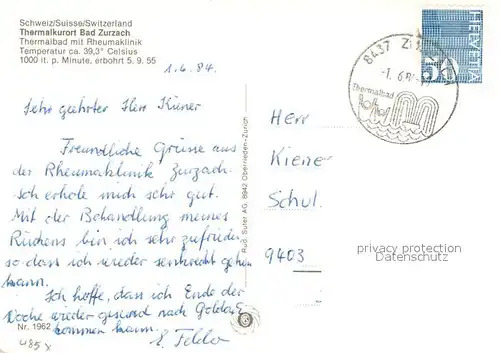 Schweiz/Suisse/Switzerland
Thermalkurort Bad Zurzach
Thermalbad mit Rheumaklinik
Temperatur ca. 39,3° Celsius
1000 lt. p. Minute, erbohrt 5. 9. 55
1.6.84.
Sehr geehrter Herr Kiener
Freundliche Grüsse aus
der Rheumaklinik Zurzach.
Ich erhole mich sehr gut.
Mit der Behandlung meines
Rückens bin ich sehr zufrieden,
so dass ich wieder senkrecht gehen
kann.
Ich hoffe, dass ich Ende der
Woche wieder gesund nach Goldach
kommen kann.
Nr. 1962
485 x
Rud. Suter AG, 8942 Oberrieden-Zürich
8437
-1.6.84
Thermalbad
HELVETIA
Herr
Kiener
Schul.
9403
privacy protection
Datenschutz